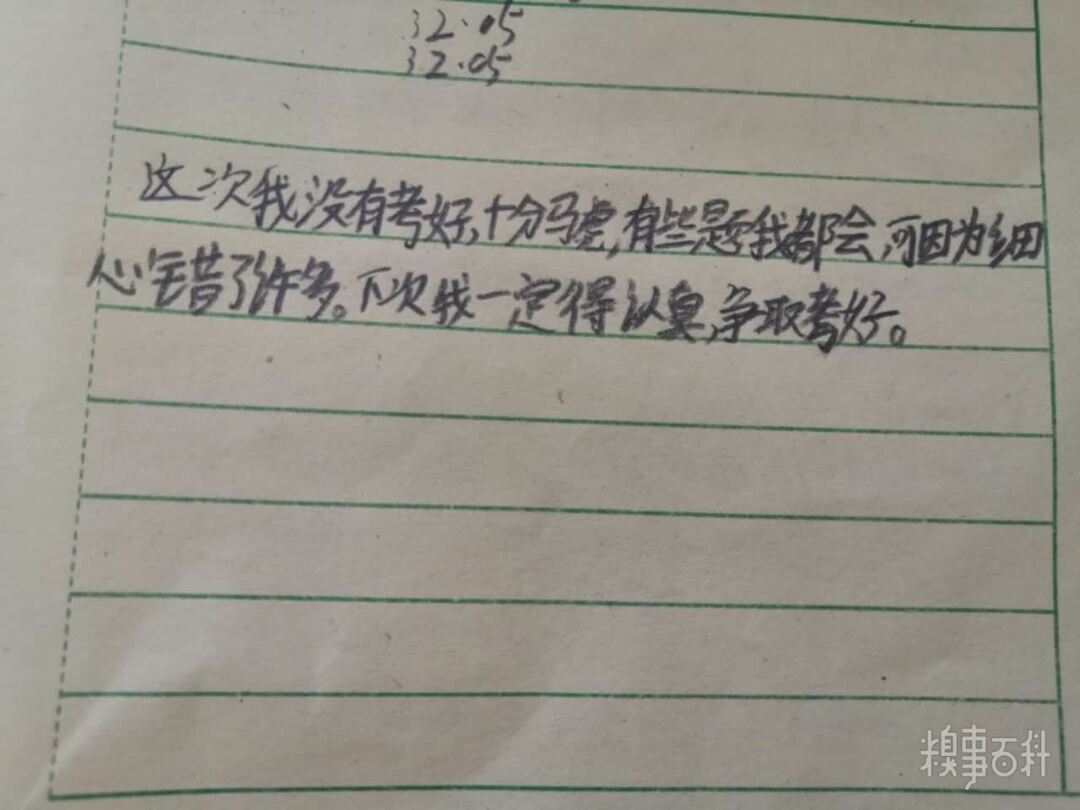 32.05
32.05
这次我没有考好,十分马虎,有些题我都会,可因为细
心错了许多。下次我一定得认真,争取考好。
糗事百科